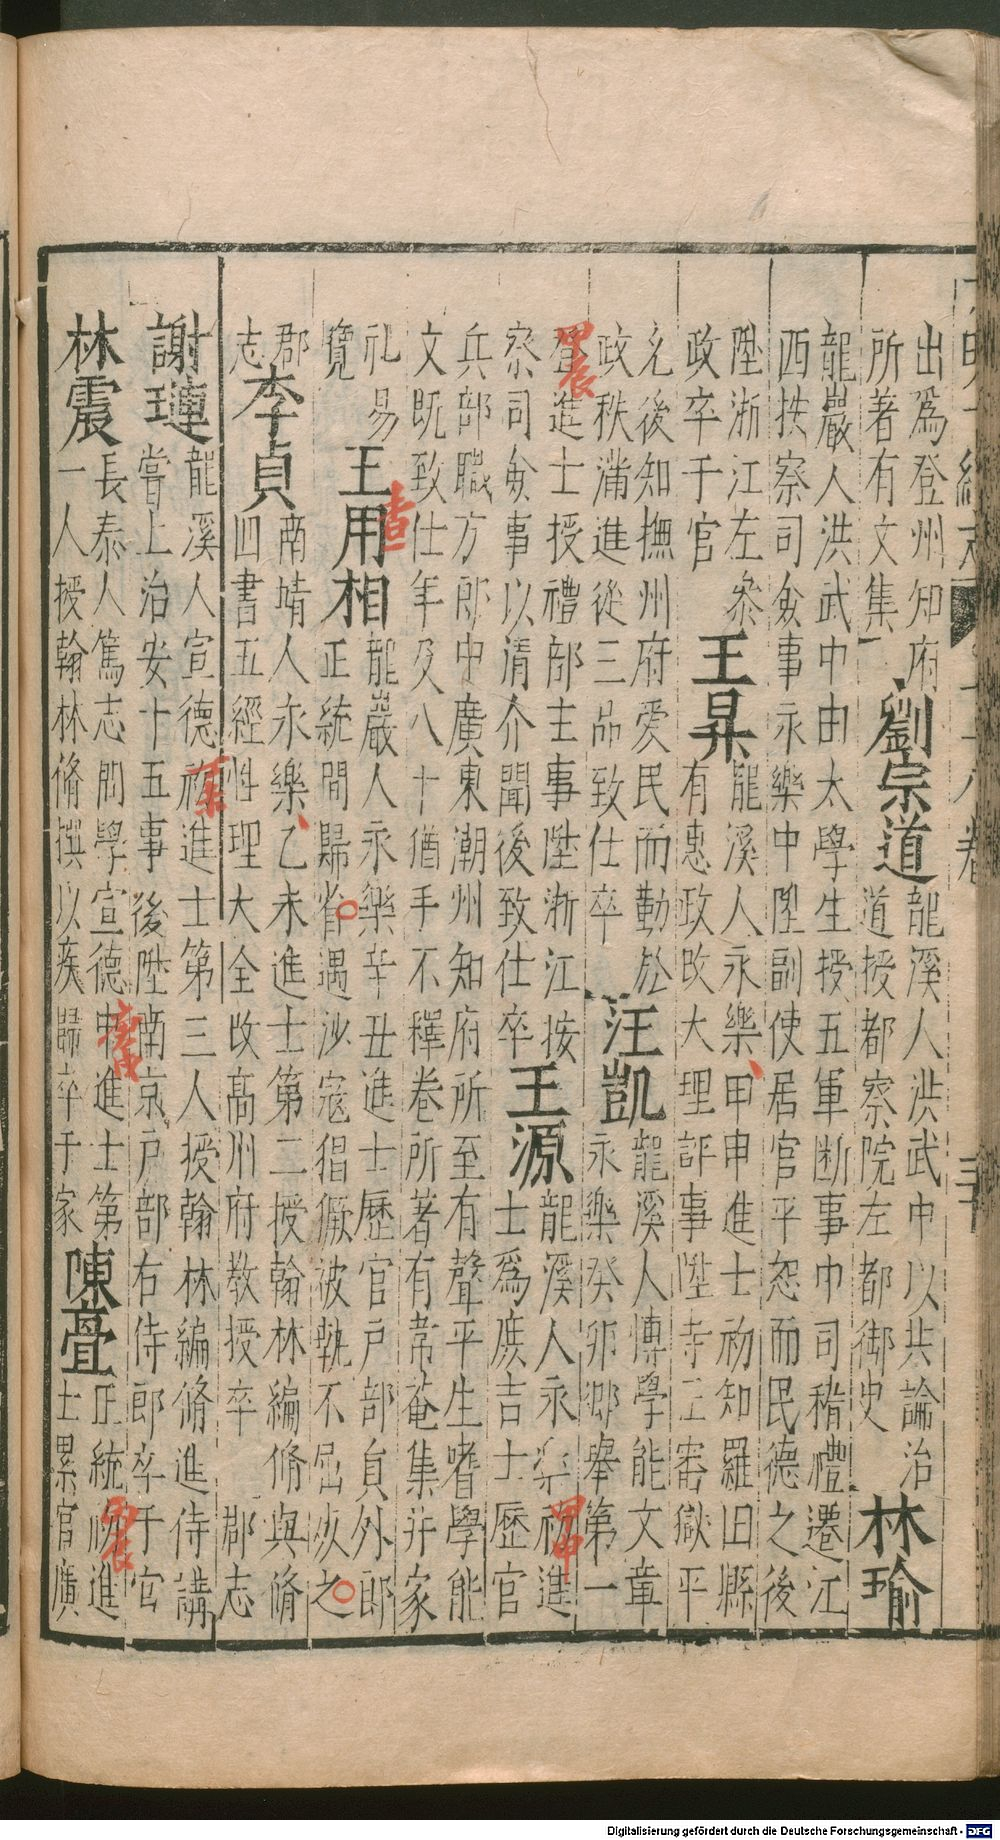 出爲登州知府劉宗道龍溪人洪武中以共論治林瑜
所著有文集道授都察院左都御史
龍巖人洪武中由太學生授五軍断事中司稽禮遷江
西按察司僉事永樂中陞副使居官平恕而民德之後
陞浙江左叅王昇龍溪人永樂甲申進士初知羅田縣
政卒于官有惠政改大理評事陞寺正審獄平
允後知撫州府爱民而勤於汪凱龍溪人博學能文章
政秩滿進從三品致仕卒永樂癸卯鄉舉第一
甲辰
登進士授禮部主事陞浙江按王源龍溪人永樂初進
甲申
察司僉事以清介聞後致仕卒士爲庶吉士歷官
兵部職方郎中廣東潮州知府所至有聲平生嗜學能
文既致仕年及八十猶手不釋卷所著有常菴集并家
礼易王用相龍巖人永樂辛丑進士歷官戸部員外郎
查
覽正統間歸省遇沙寇猖獗被執不屈灰之
郡李貞南靖人永樂乙未進士第二授翰林編脩與脩
志四書五經性理大全改髙州府教授卒郡志
謝璉龍溪人宣德初進士第三人授翰林編脩進侍講
嘗上治安十五事後陞南京戸部右侍郎卒于官
林震長泰人篤志問學宣德中進士第陳亹正統初進
丙辰
一人授翰林脩撰以疾歸卒于家士累官廣
Digitalisierung gefördert durch die Deutsche Forschungsgemeinschaft - DFG